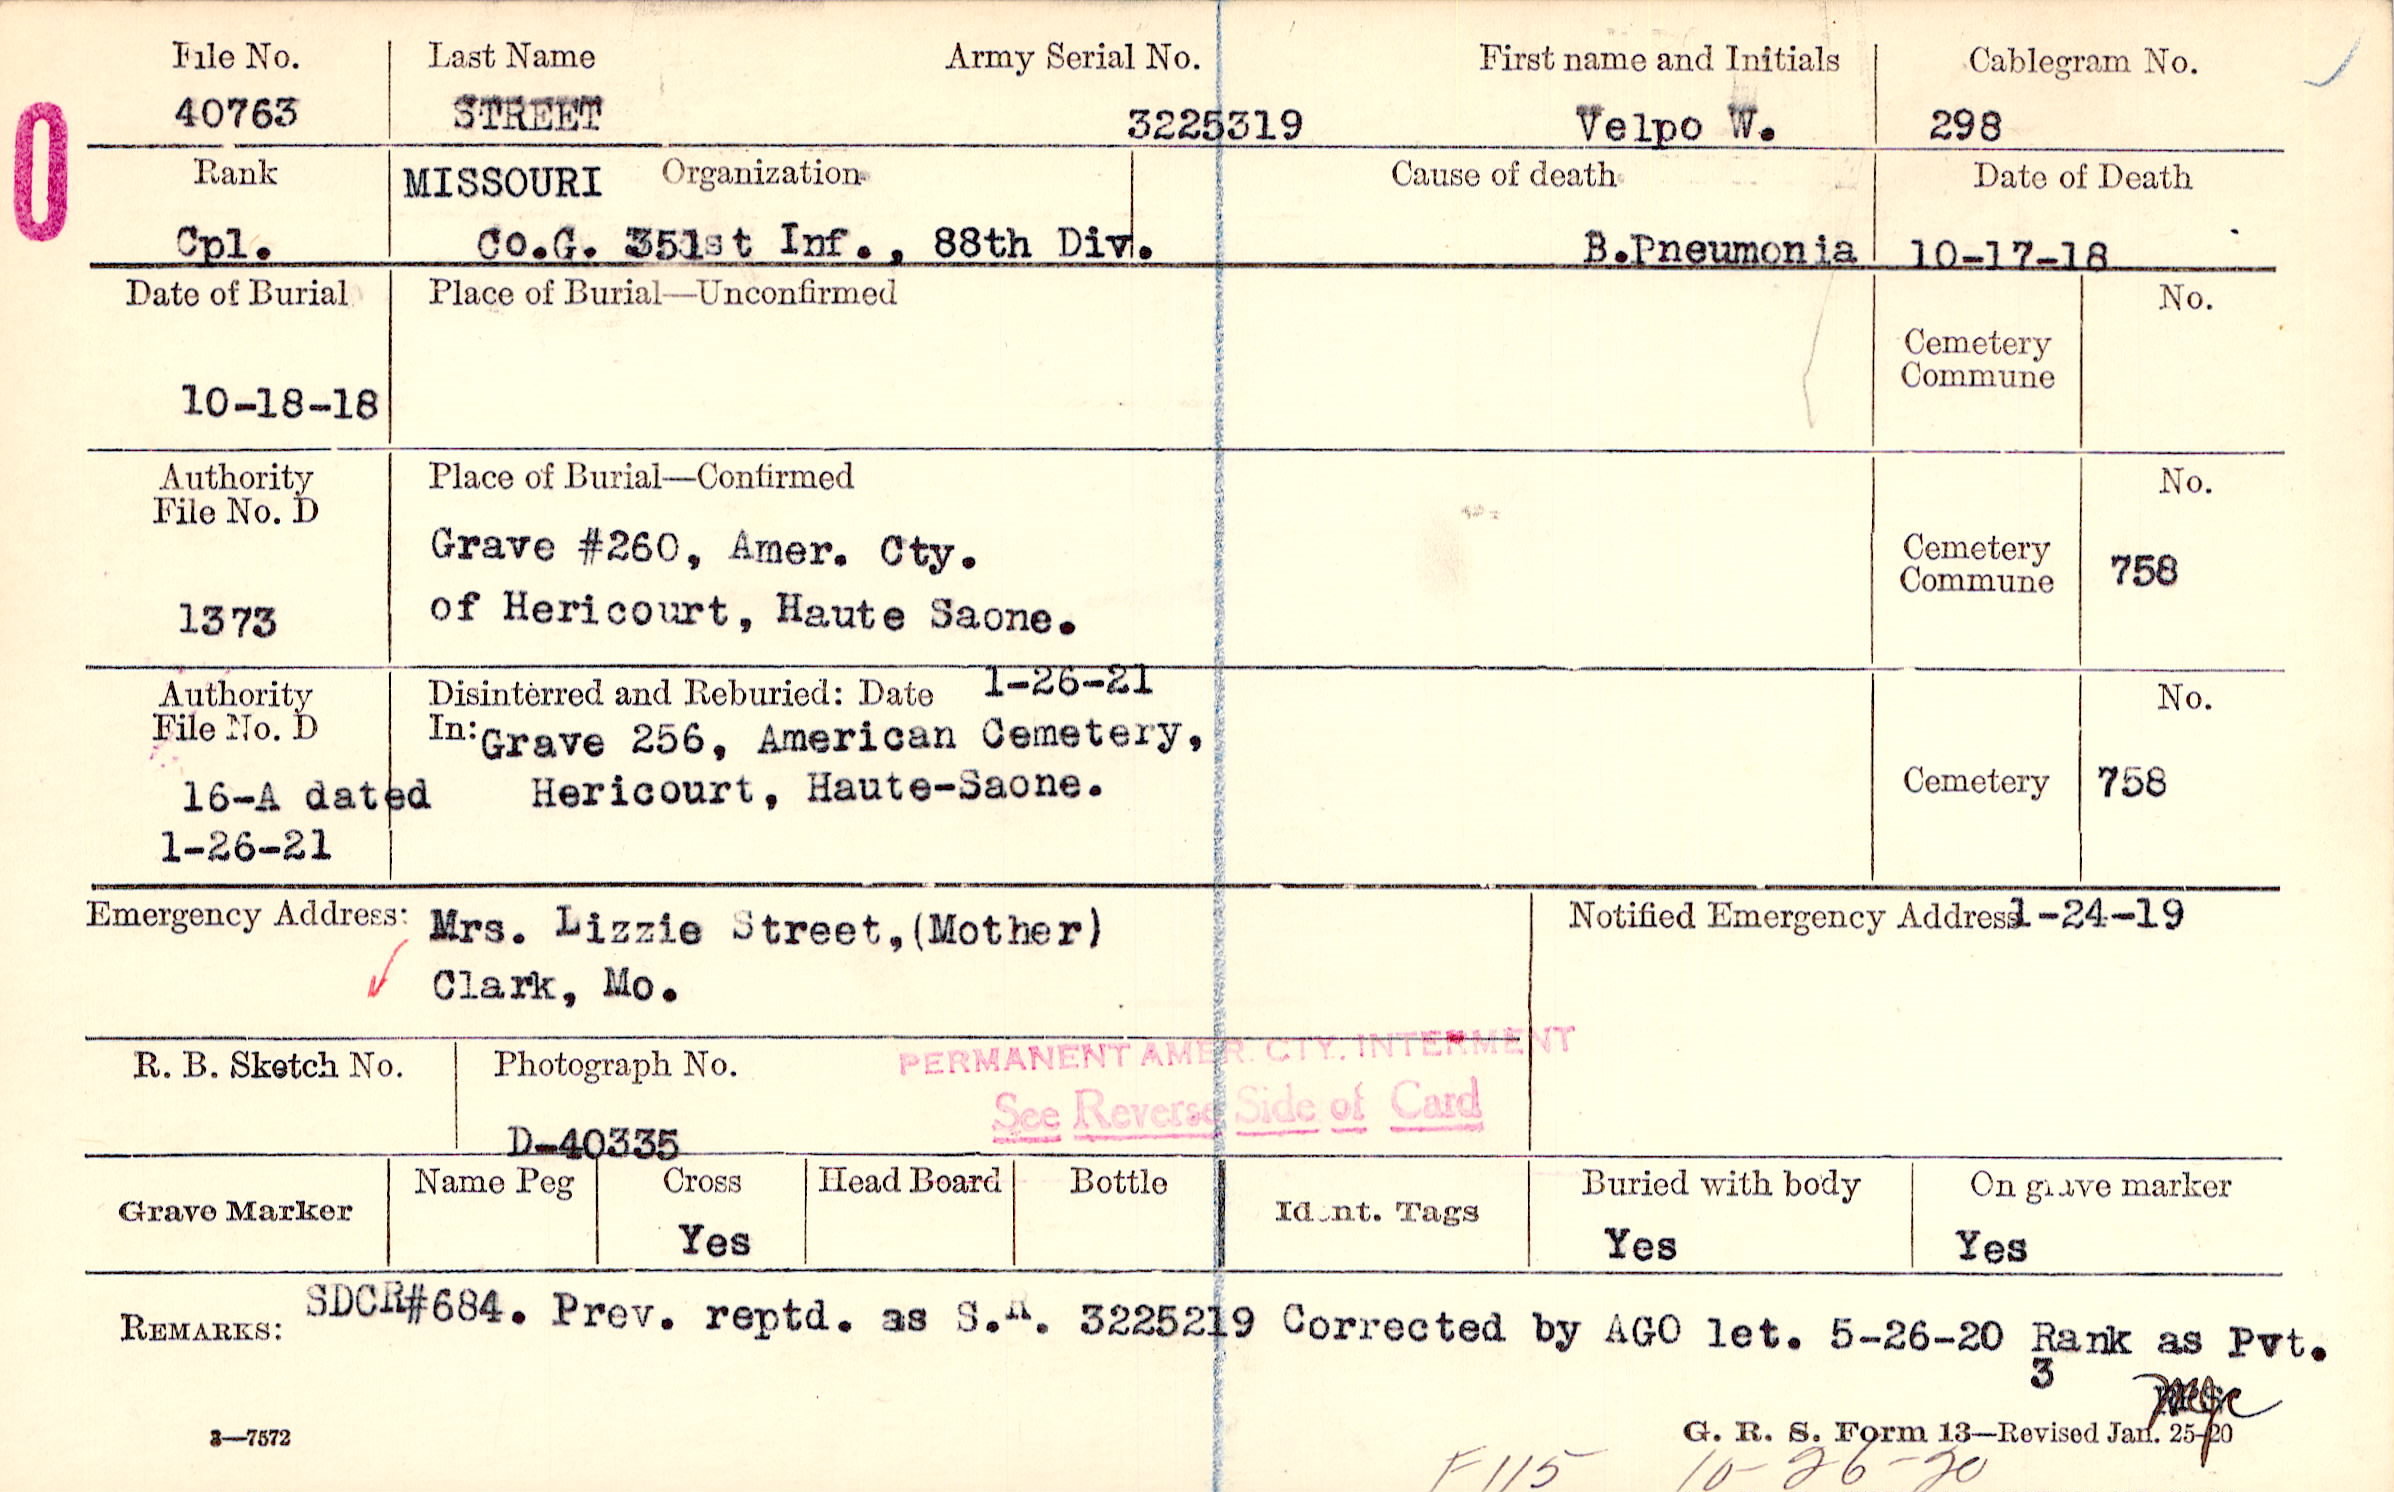 File No. Last Name Army Serial No. First name and Initials Cablegram No.
40763 STREET 3225319 Velpo W. 298
Rank MISSOURI Organization Cause of death Date of Death
Cpl. Co.G. 351st Inf., 88th Div. B.Pneumonia 10-17-18
Date of Burial Place of Burial—Unconfirmed No.
Cemetery
Commune
10-18-18
Authority Place of Burial—Confirmed No.
File No. D
Grave #260, Amer. Cty. Cemetery
Commune 758
1373 of Hericourt, Haute Saone.
Authority Disinterred and Reburied: Date 1-26-21 No.
File No. D In: Grave 256, American Cemetery,
16-A dated Hericourt, Haute-Saone. Cemetery 758
1-26-21
Emergency Address: Mrs. Lizzie Street,(Mother) Notified Emergency Address 1-24-19
Clark, Mo.
R. B. Sketch No. Photograph No. PERMANENT AMER. CTY. INTERMENT
See Reverse Side of Card
D-40335
Grave Marker Name Peg Cross Head Board Bottle Ident. Tags Buried with body On grave marker
Yes Yes Yes
REMARKS: SDCR#684. Prev. reptd. as S.#. 3225219 Corrected by AGO let. 5-26-20 Rank as Pvt.
3
3—7572 G. R. S. Form 13—Revised Jan. 25-20
F115 10-26-20